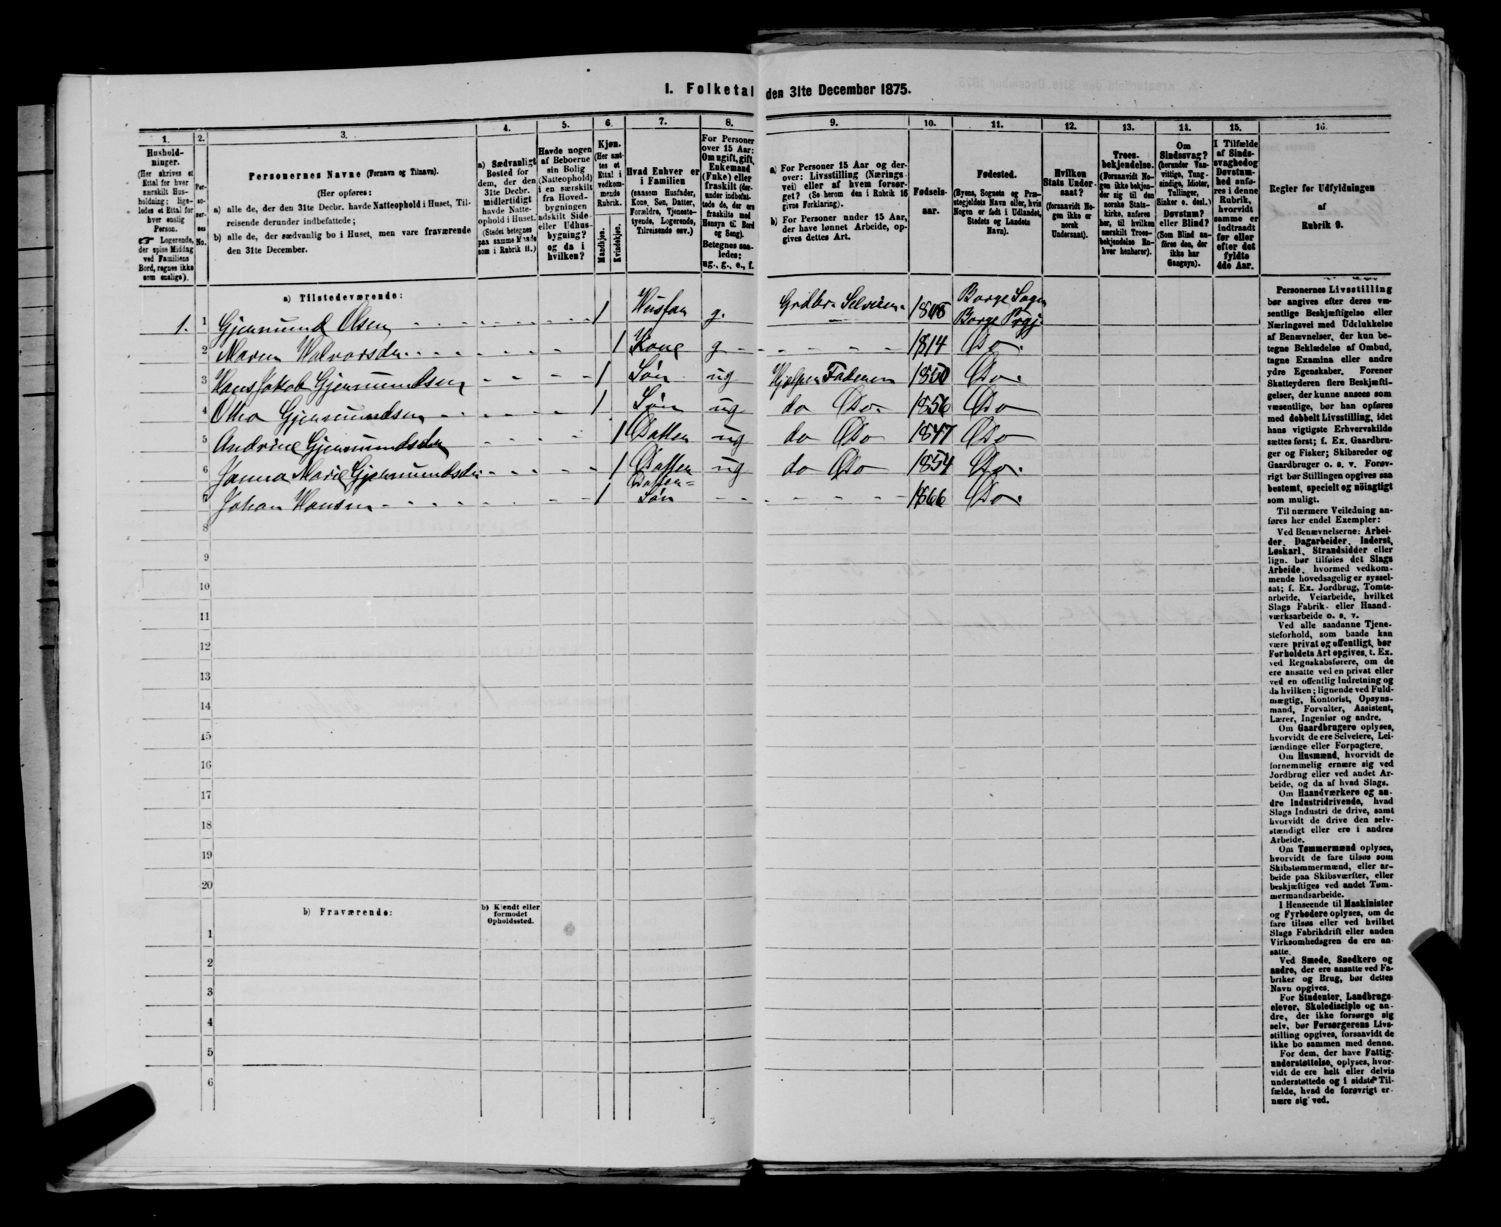 I. Folketal den 31te December 1875.
1.
2.
3.
4.
5.
6.
7.
8.
9.
10.
11.
12.
13.
14.
15.
16.
Hushold-
ninger.
(Her skrives et
Ettal for hver
særskilt Hus-
holdning; lige-
ledes et Ettal for
hver enslig
Person.
Logerende,
der spise Middag
ved Familiens
Bord, regnes ikke
som enslige).
Per-
so-
ner-
nes
No.
Personernes Navne (Fornavn og Tilnavn).
(Her opføres:
a) alle de, der den 31te Decbr. havde Natteophold i Huset, Til-
reisende derunder indbefattede;
b) alle de, der sædvanlig bo i Huset, men vare fraværende
den 31te December.
a) Sædvanligt
Bosted for
dem, der den
31te Decbr.
midlertidigt
havde Natte-
ophold i Huset.
(Stedet betegnes
paa samme Maade
som i Rubrik 11.)
Havde nogen
af Beboerne
sin Bolig
(Natteophold)
i en særskilt
fra Hoved-
bygningen
adskilt Side-
eller Udhus-
bygning?
og da i
hvilken?
Kjøn.
(Her sæt-
tes et
Ettal i
vedkom-
mende
Rubrik.
Mandkjøn.
Kvindekjøn.
Hvad Enhver er
i Familien
(saasom Husfader,
Kone, Søn, Datter,
Forældre, Tjeneste-
tyende, Logerende,
Tilreisende osv.)
For Personer
over 15 Aar:
Om ugift, gift,
Enkemand
(Enke) eller
fraskilt (der-
under indbefat-
tede de, der ere
fraskilte med
Hensyn til Bord
og Seng).
Betegnes saa-
ledes:
ug., g., e., f.
a) For Personer 15 Aar og der-
over: Livsstilling (Nærings-
vei) eller af hvem forsør-
get? (Se herom den i Rubrik 16
givne Forklaring).
b) For Personer under 15 Aar,
der have lønnet Arbeide, op-
gives dettes Art.
Fødsels-
aar.
Fødested.
(Byens, Sognets og Præ-
stegjeldets Navn eller, hvis
Nogen er født i Udlandet,
Stedets og Landets
Navn).
Hvilken
Stats Under-
saat?
(forsaavidt No-
gen ikke er
norsk
Undersaat).
Troes-
bekjendelse.
(Forsaavidt No-
gen ikke bekjen-
der sig til den
norske Stats-
kirke, anføres
her, til hvilken
særskilt Troes-
bekjendelse En-
hver henhører).
Om
Sindssvag?
(herunder Van-
vittige, Tung-
sindige, Idioter,
Tullinger,
Sinker o. desl.)
Døvstum?
eller Blind?
(Som Blind an-
føres den, der
ikke har
Gangsyn).
I Tilfælde
af Sinds-
svaghed og
Døvstum-
hed anfø-
res i denne
Rubrik,
hvorvidt
samme er
indtraadt
før eller
efter det
fyldte
4de Aar.
Regler for Udfyldningen
af
Rubrik 9.
a) Tilstedeværende:
1. 1 Gjermund Olsen 1 Husfar g. Grdbr. Selveier 18 Borge Sogn Borge Prgj.
2 Maren Halvorsdr. 1 Kone g 1814 Do
3 Hans Jakob Gjermundsen 1 Søn ug Hjelper Faderen 1850 Do
4 Otto Gjermundsen 1 Søn ug do Do 1856 Do
5 Andrine Gjermundsdr 1 Datter ug do Do 1847 Do
6 Janna Marie Gjermundsdr 1 Datter ug do Do 1854 Do
7 Johan Hansen 1 Datter- Søn 1866 Do
8
9
10
11
12
13
14
15
16
17
18
19
20
b) Fraværende:
b) Kjendt eller
formodet
Opholdssted.
1
2
3
4
5
6
Personernes Livsstilling
bør angives efter deres væ-
sentlige Beskjæftigelse eller
Næringsvei med Udelukkelse
af Benævnelser, der kun be-
tegne Beklædelse af Ombud,
tagne Examina eller andre
ydre Egenskaber. Forener
Skatteyderen flere Beskjæfti-
gelser, der kunne ansees som
væsentlige, bør han opføres
med dobbelt Livsstilling, idet
hans vigtigste Erhvervskilde
sættes først; f. Ex. Gaardbru-
ger og Fisker; Skibsreder og
Gaardbruger o. s. v. Forøv-
rigt bør Stillingen opgives saa
bestemt, specielt og nøiagtigt
som muligt.
Til nærmere Veiledning an-
føres her endel Exempler:
Ved Benævnelserne: Arbei-
der, Dagarbeider, Inderst,
Løskarl, Strandsidder eller
lign. bør tilføies det Slags
Arbeide, hvormed vedkom-
mende hovedsagelig er syssel-
sat; f. Ex. Jordbrug, Tomte-
arbeide, Veiarbeide, hvilket
Slags Fabrik- eller Haand-
værksarbeide o. s. v.
Ved alle saadanne Tjene-
steforhold, som baade kan
være privat og offentligt, bør
Forholdets Art opgives, t. Ex.
ved Regnskabsførere, om de
ere ansatte ved en privat eller
ved en offentlig Indretning og
da hvilken; lignende ved Fuld-
mægtig, Kontorist, Opsyns-
mand, Forvalter, Assistent,
Lærer, Ingeniør og andre.
Om Gaardbrugere oplyses,
hvorvidt de ere Selveiere, Lei-
lændinge eller Forpagtere.
Om Husmænd, hvorvidt de
fornemmelig ernære sig ved
Jordbrug eller ved andet Ar-
beide, og da af hvad Slags.
Om Haandværkere og an-
dre Industridrivende, hvad
Slags Industri de drive, samt
hvorvidt de drive den selv-
stændigt eller ere i andres
Arbeide.
Om Tømmermænd oplyses,
hvorvidt de fare tilsøs som
Skibstømmermænd, eller ar-
beide paa Skibsværfter, eller
beskjæftiges ved andet Tøm-
mermandsarbeide.
I Henseende til Maskinister
og Fyrbødere oplyses, om de
fare tilsøs eller ved hvilket
Slags Fabrikdrift eller anden
Virksomhedsgren de ere an-
satte.
Ved Smede, Snedkere og
andre, der ere ansatte ved Fa-
briker og Brug, bør dettes
Navn opgives.
For Studenter, Landbrugs-
elever, Skoledisciple og an-
dre, der ikke forsørge sig
selv, bør Forsørgerens Livs-
stilling opgives, forsaavidt de
ikke bo sammen med denne.
For dem, der have Fattig-
understøttelse, oplyses, hvor-
vidt de ere helt eller delvis
understøttede og i sidste Til-
fælde, hvad de forøvrigt er-
nære sig ved.